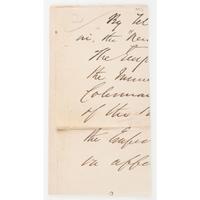 My Tel
in the New
The Emp
the
Coleman
of the
the Empe
va appe